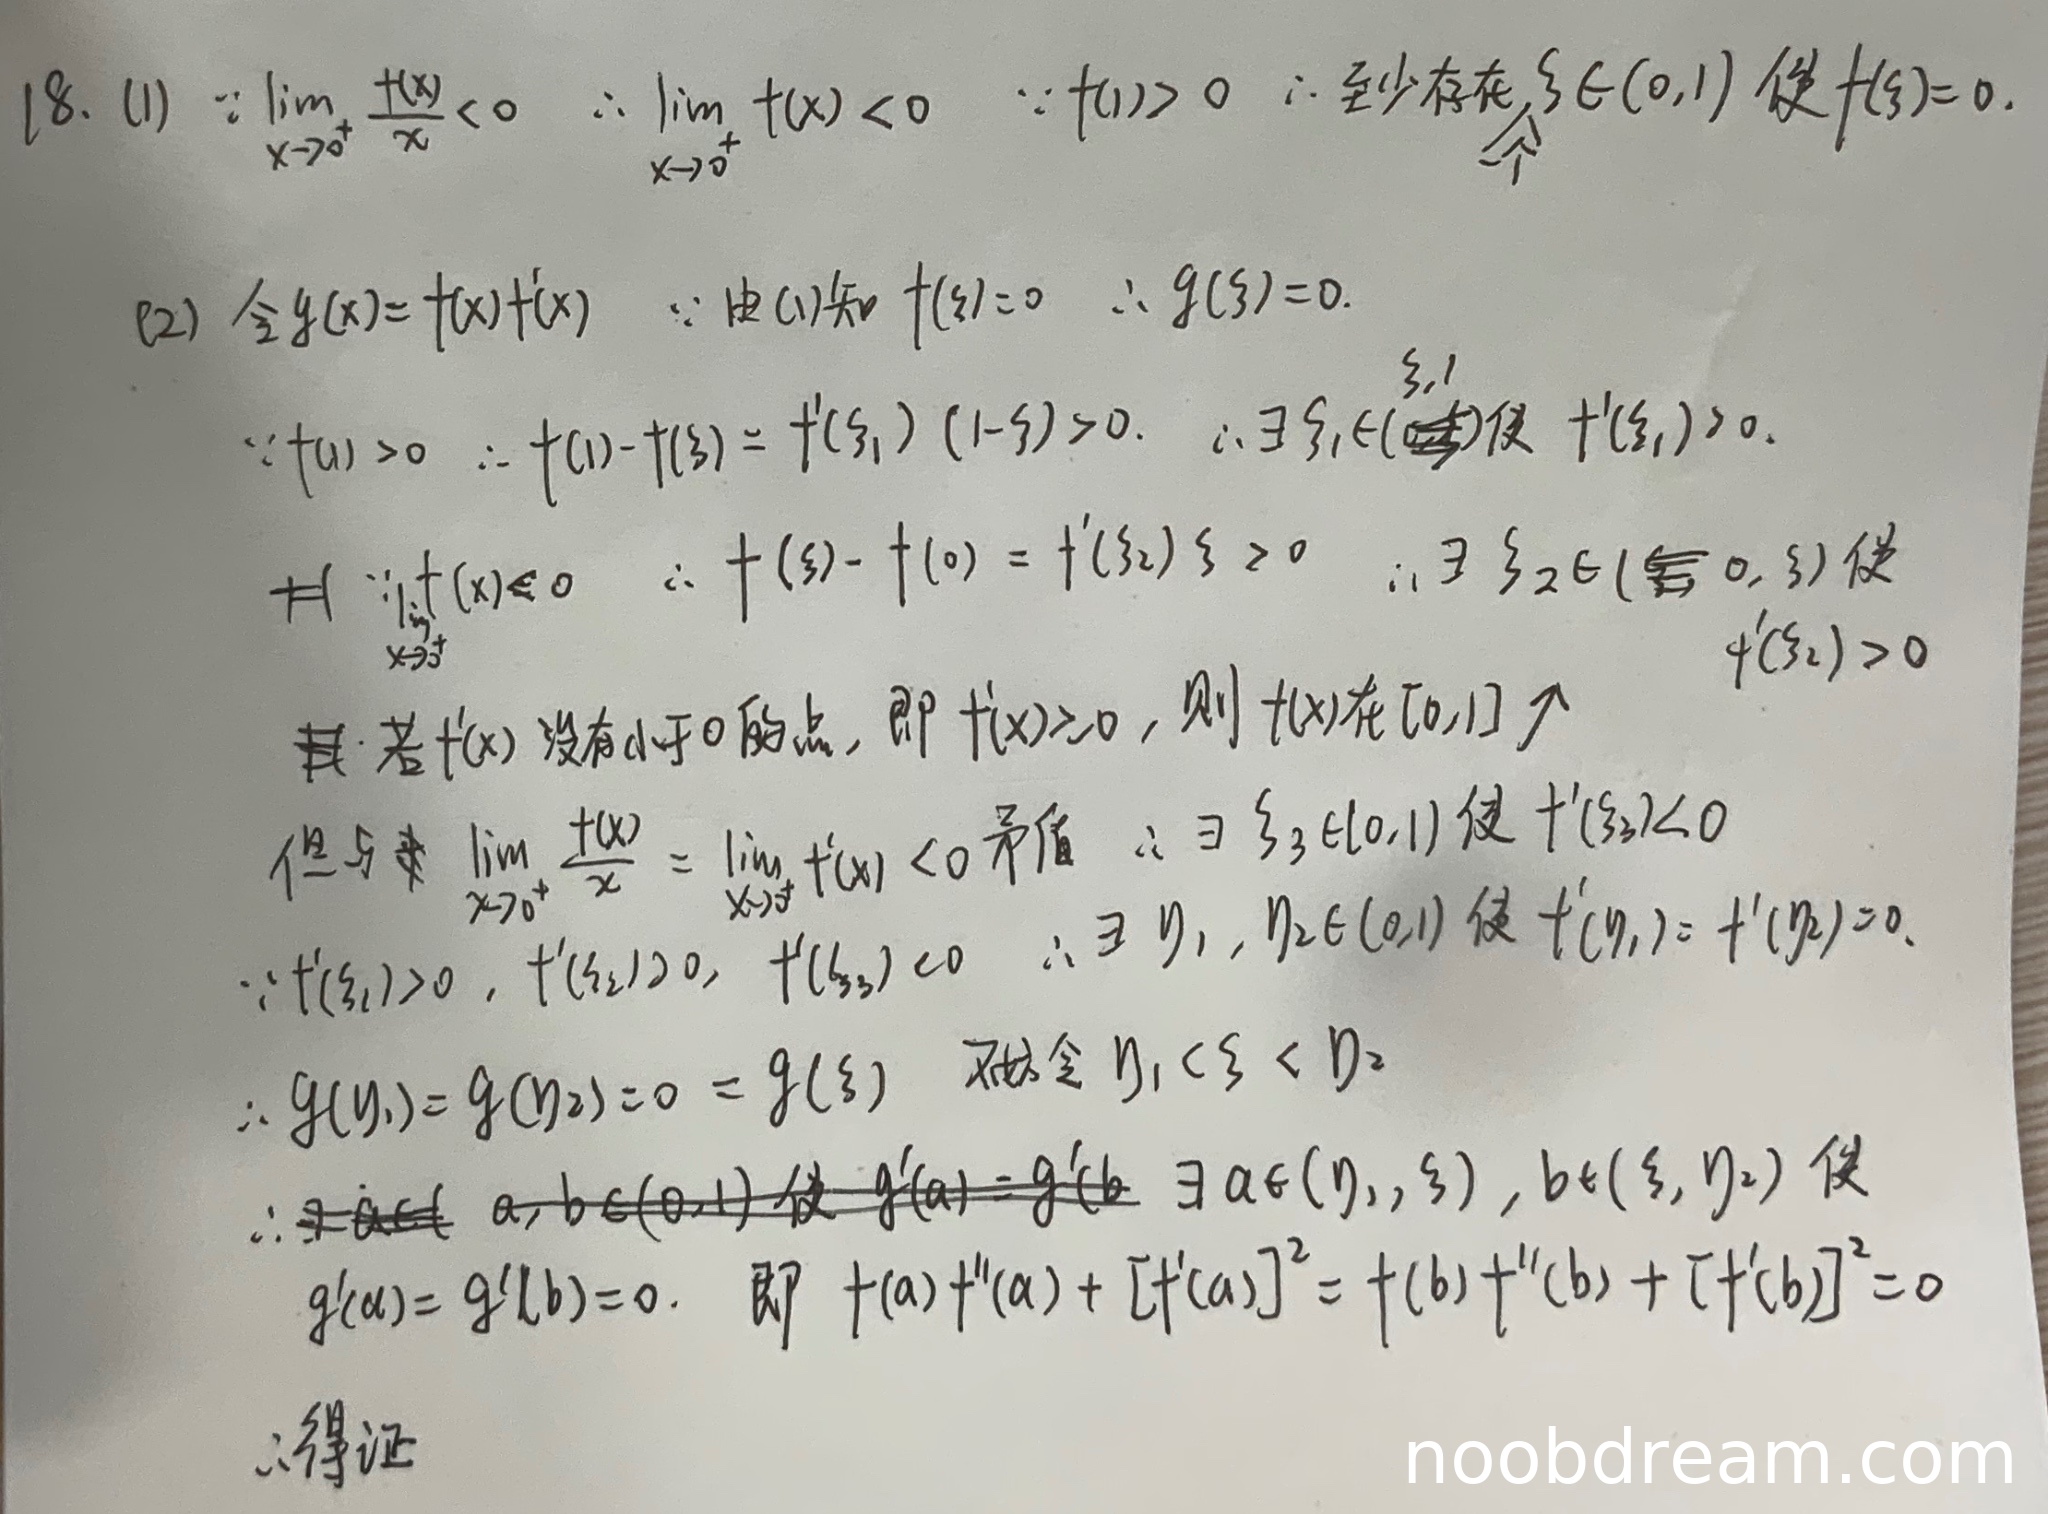 18. (1) ∵ lim_{x→0⁺} f(x)/x < 0 ∴ lim_{x→0⁺} f(x) < 0 ∵ f(1) > 0 ∴ 至少存在一个 ξ∈(0,1) 使 f(ξ)=0.
(2) 令 g(x)=f(x)f'(x) ∵ 由(1)知 f(ξ)=0 ∴ g(ξ)=0.
∵ f(1)>0 ∴ f(1)-f(ξ) = f'(ξ₁)(1-ξ)>0. ∴ ∃ ξ₁∈(ξ,1)使 f'(ξ₁)>0.
∵ lim_{x→0⁺} f(x)<0 ∴ f(ξ)-f(0) = f'(ξ₂)ξ > 0 ∴ ∃ ξ₂∈(0,ξ) 使
f'(ξ₂)>0
若f'(x) 没有小于0的点, 即 f'(x)≥0, 则 f(x)在[0,1]↗
但与 lim_{x→0⁺} f(x)/x = lim_{x→0⁺} f'(x) <0 矛盾 ∴ ∃ ξ₃∈(0,1) 使 f'(ξ₃)<0
∵ f'(ξ₁)>0, f'(ξ₂)>0, f'(ξ₃)<0 ∴ ∃ η₁, η₂∈(0,1) 使 f'(η₁)= f'(η₂)=0.
∴ g(η₁)= g(η₂)=0 = g(ξ) 不妨令 η₁<ξ<η₂
∴ a, b∈(0,1) 使 g'(a) = g'(b ∃ a∈(η₁,ξ), b∈(ξ,η₂) 使
g'(a)= g'(b)=0. 即 f(a)f''(a)+[f'(a)]²= f(b)f''(b)+[f'(b)]²=0
∴得证
noobdream.com